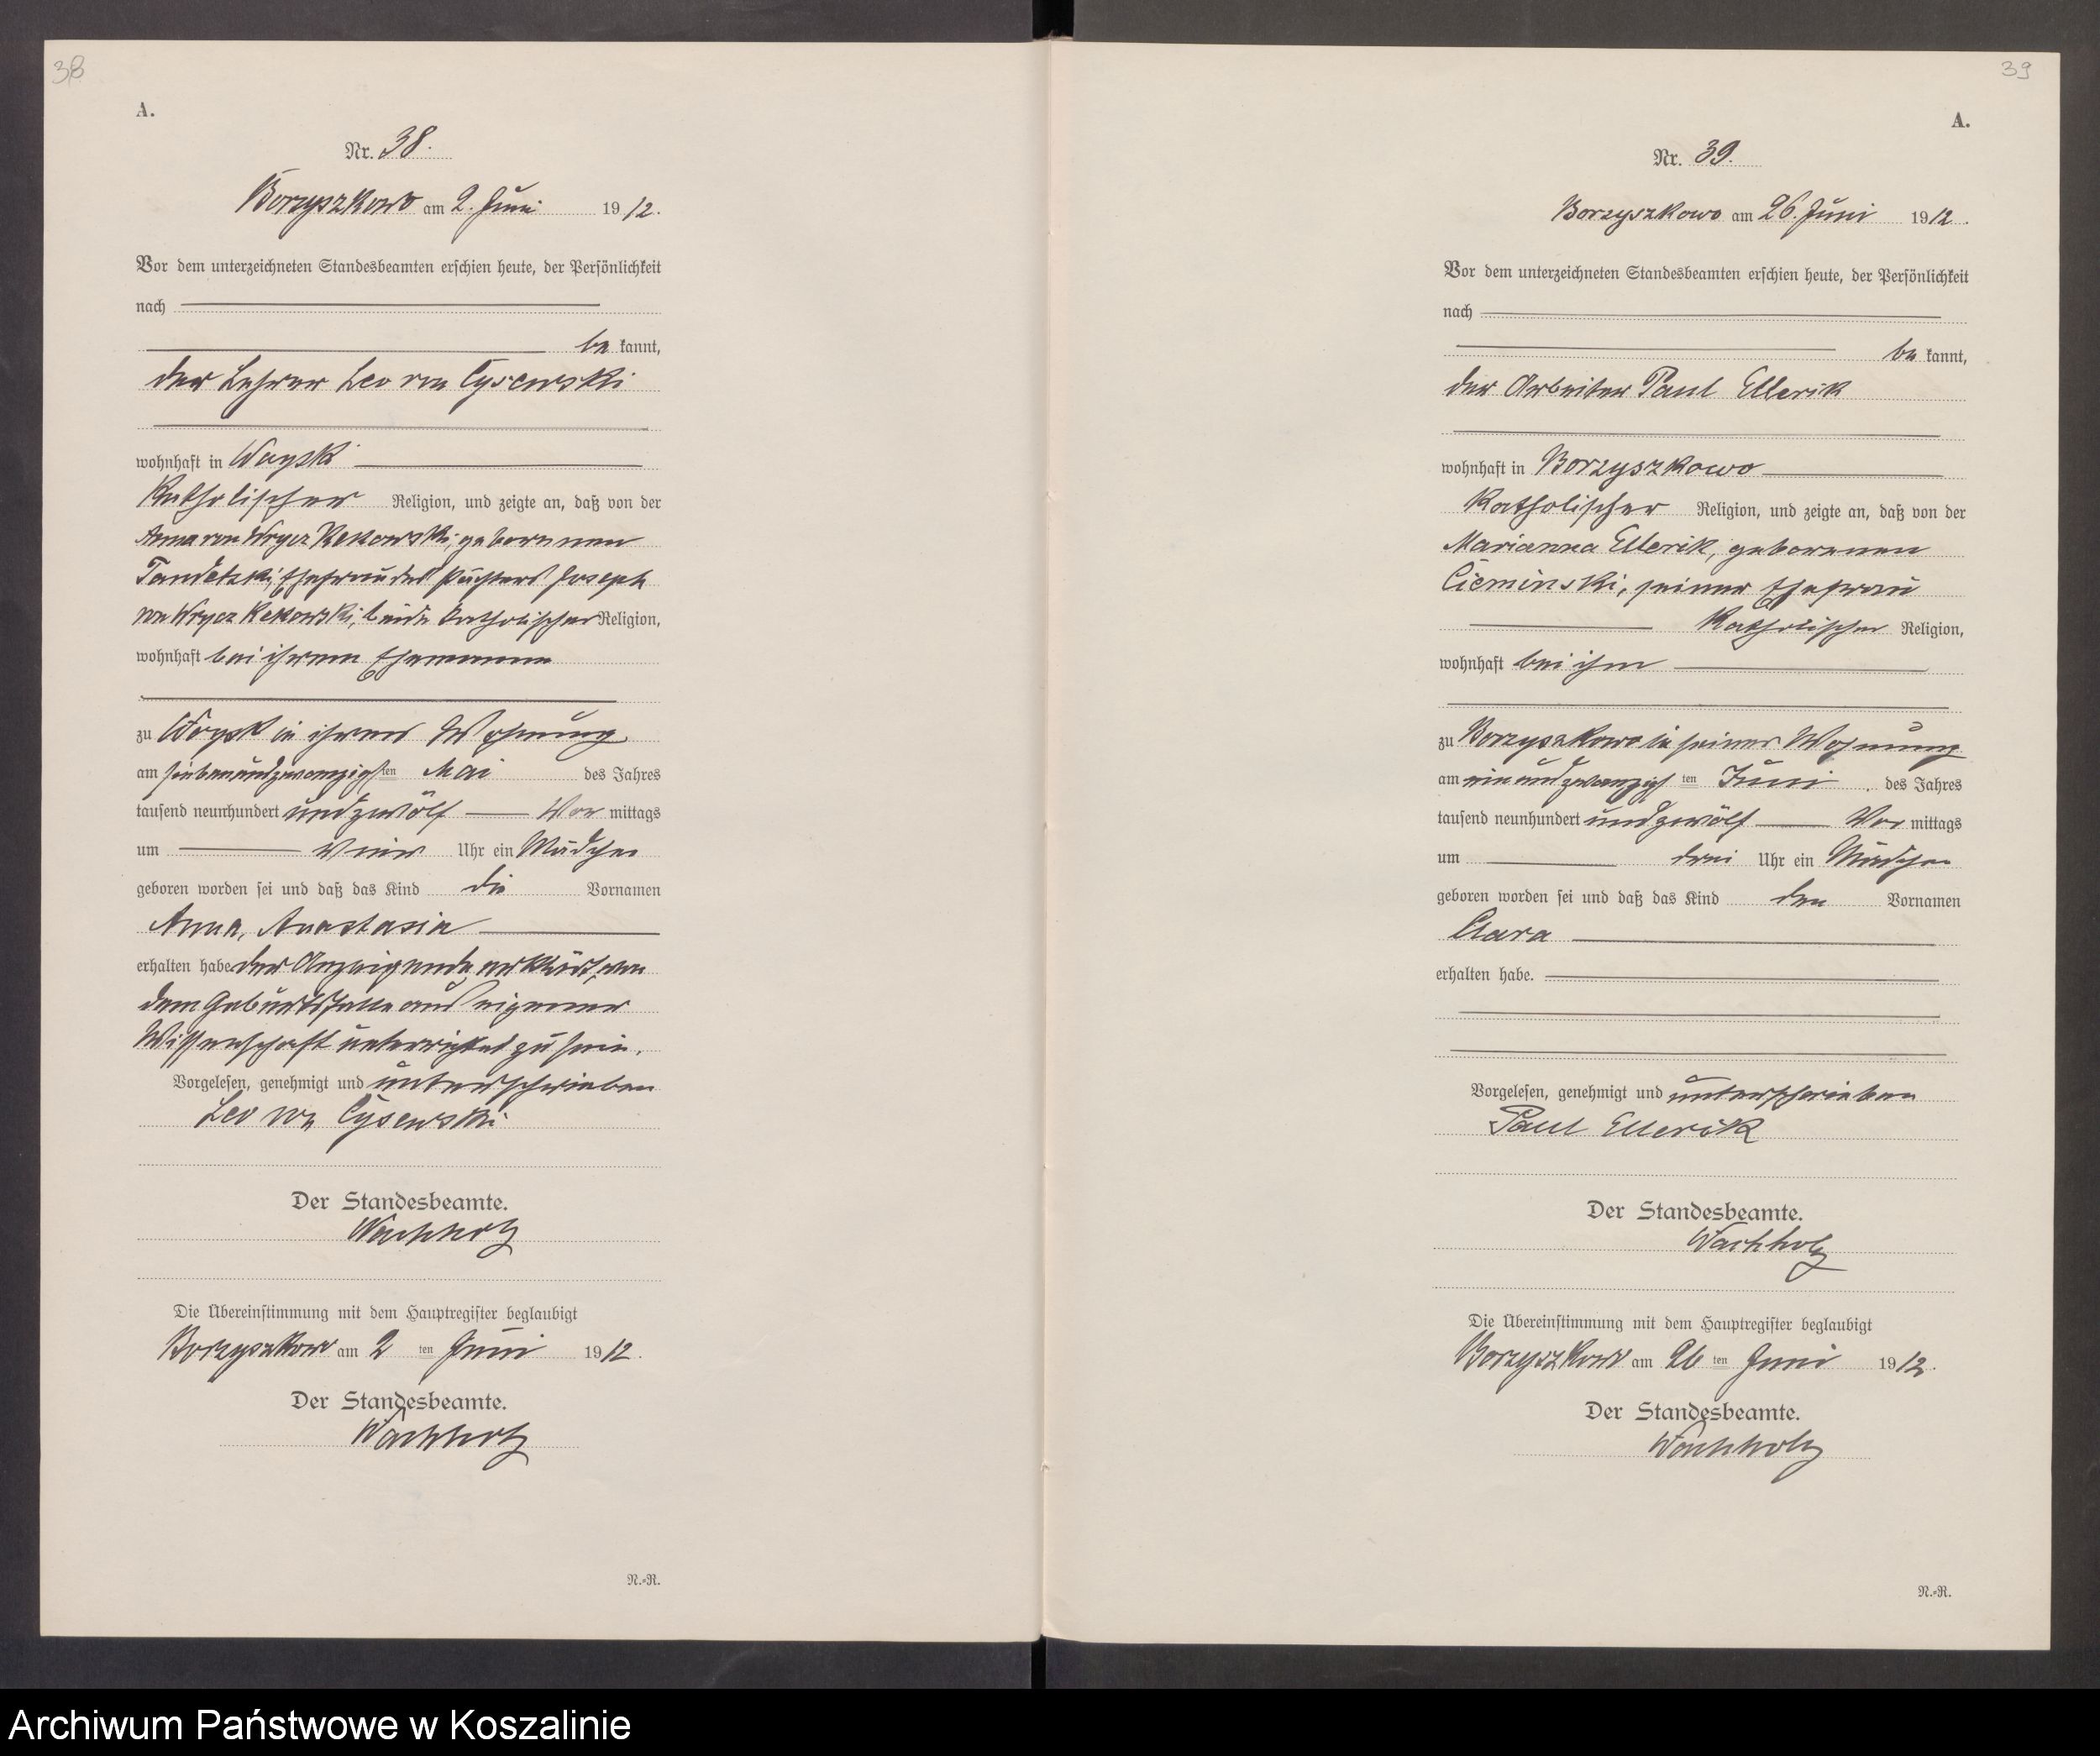 38
A.
Nr. 38.
Borzyszkowo am 2. Juni 1912.
Vor dem unterzeichneten Standesbeamten erschien heute, der Persönlichkeit
nach
be kannt,
der Lehrer Leo von Cysewski
wohnhaft in Woysk
katholischer Religion, und zeigte an, daß von der
Anna von Wrycz Rekowski, geborenen
Tandetzki, Ehefrau des Pächters Joseph
von Wrycz Rekowski, beide katholischer Religion,
wohnhaft bei ihrem Ehemanne
zu Woysk in ihrer Wohnung
am siebenundzwanzigsten Mai des Jahres
tausend neunhundert und zwölf Vor mittags
um vier Uhr ein Mädchen
geboren worden sei und daß das Kind die Vornamen
Anna, Anastasia
erhalten habe der Anzeigende erklärt, von
dem Geburtsfalle aus eigener
Wissenschaft unterrichtet zu sein.
Vorgelesen, genehmigt und unterschrieben
Leo von Cysewski
Der Standesbeamte.
Wachholz
Die Übereinstimmung mit dem Hauptregister beglaubigt
Borzyszkowo am 2 ten Juni 1912.
Der Standesbeamte.
Wachholz
N.-R.
39
A.
Nr. 39.
Borzyszkowo am 26. Juni 1912.
Vor dem unterzeichneten Standesbeamten erschien heute, der Persönlichkeit
nach
be kannt,
der Arbeiter Paul Ellerik
wohnhaft in Borzyszkowo
katholischer Religion, und zeigte an, daß von der
Marianna Ellerik, geborenen
Cieminski, seiner Ehefrau
katholischer Religion,
wohnhaft bei ihm
zu Borzyszkowo in seiner Wohnung
am einundzwanzigsten Juni des Jahres
tausend neunhundert und zwölf Vor mittags
um drei Uhr ein Mädchen
geboren worden sei und daß das Kind den Vornamen
Clara
erhalten habe.
Vorgelesen, genehmigt und unterschrieben
Paul Ellerik
Der Standesbeamte.
Wachholz
Die Übereinstimmung mit dem Hauptregister beglaubigt
Borzyszkowo am 26 ten Juni 1912.
Der Standesbeamte.
Wachholz
N.-R.
Archiwum Państwowe w Koszalinie